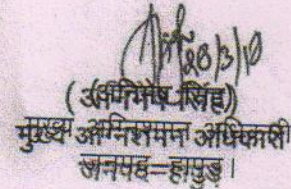 28/3/10
(अनिमेष सिंह)
मुख्य अग्निशमन अधिकारी
जनपद-हापुड़।